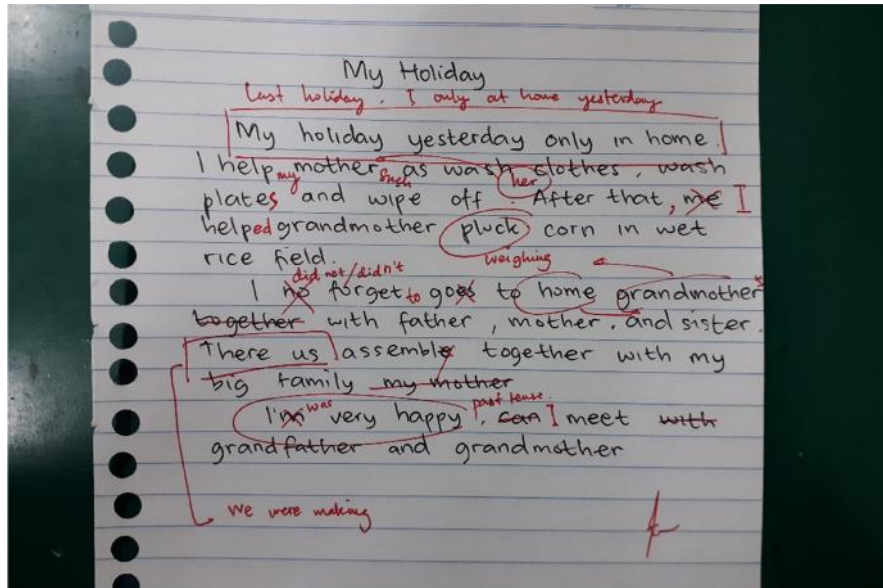 My Holiday
Last holiday, I only at home yesterday
My holiday yesterday only in home.
I help my mother such as wash clothes, wash
her
plates and wipe off. After that, me I
helped grandmother pluck corn in wet
weighing
rice field.
did not/didn't
I no forget to goes to home grandmother's
together with father, mother, and sister.
There us assemble together with my
big family my mother
was past tense
I'm very happy, can I meet with
grandfather and grandmother
we were making